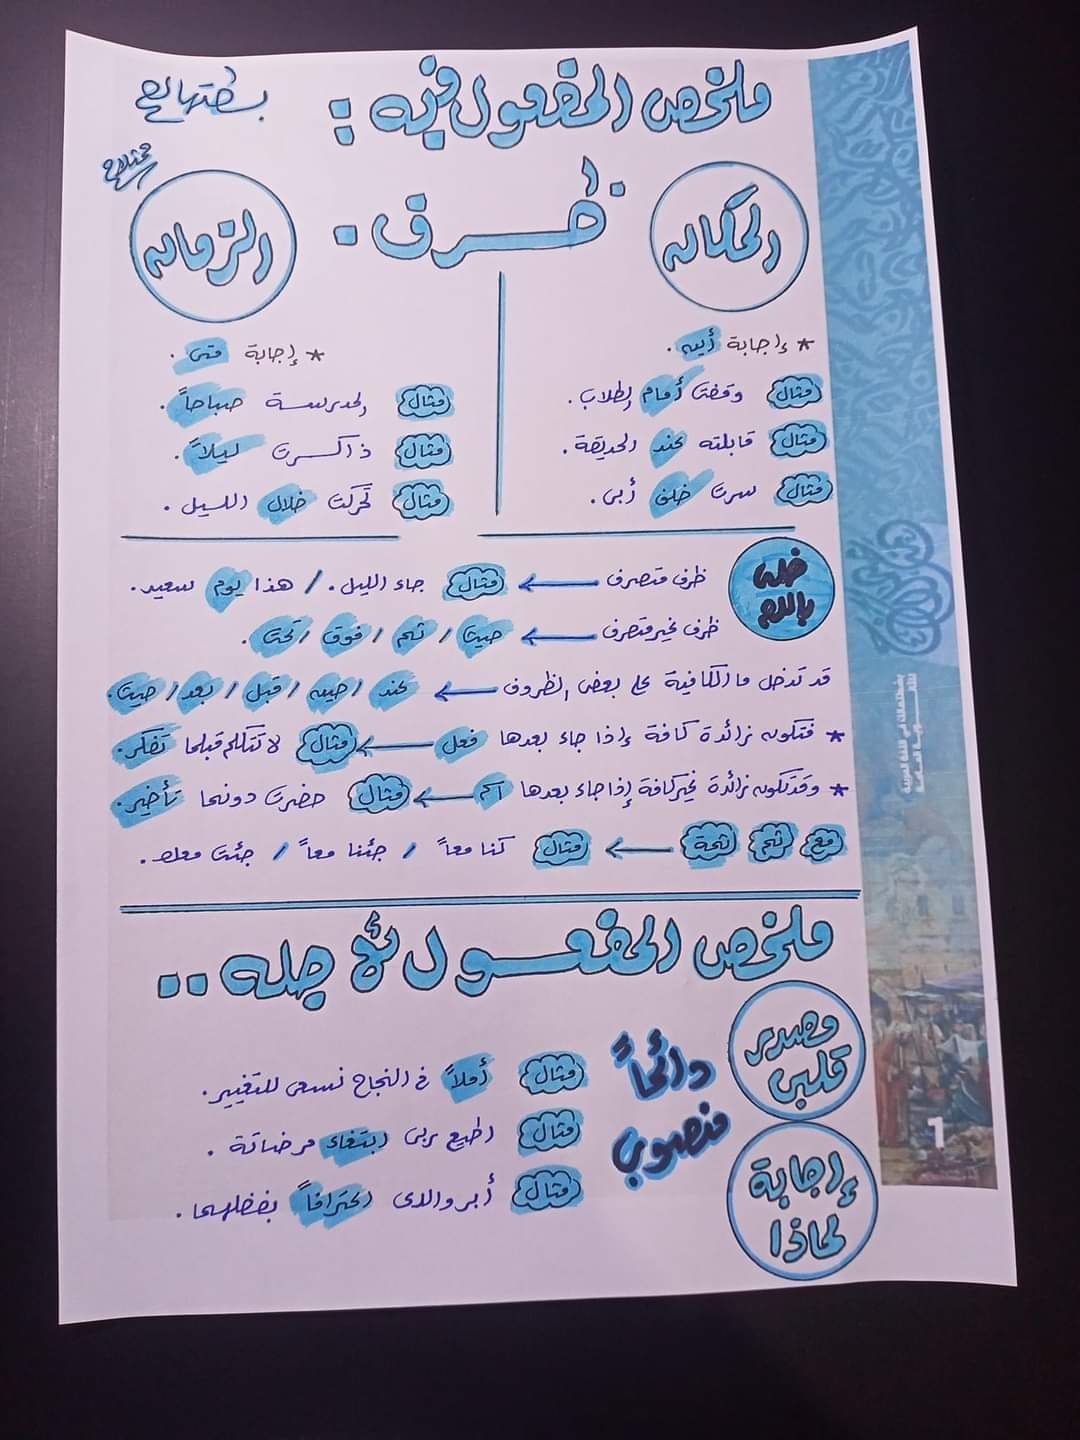 ملخص المفعول فيه :
بسطتهالك
المكان
ظرف .
الزمان
* إجابة أين .
مثال وقفت أمام الطلاب .
مثال قابلته عند الحديقة .
مثال سرت خلف أبى .
* إجابة متى .
مثال المدرسة صباحاً .
مثال ذاكرت ليلاً .
مثال تحركت خلال الليل .
خلى بالك
ظرف متصرف ← مثال جاء الليل . / هذا يوم سعيد .
ظرف غير متصرف ← حيث / ثم / فوق / تحت .
قد تدخل ما الكافية على بعض الظروف ← عند / حين / قبل / بعد / حيث .
* فتكون زائدة كافة إذا جاء بعدها فعل ← مثال لا تتكلم قبلما تفكر .
* وقد تكون زائدة غير كافة إذا جاء بعدها اسم ← مثال حضرت دونما تأخير .
مع ثم ثمة ← مثال كنا معاً / جئنا معاً / جئت معك .
ملخص المفعول لأجله ..
مصدر قلبى
إجابة لماذا
دائماً منصوب
مثال أملاً فى النجاح نسعى للتغيير .
مثال اطيع ربى ابتغاء مرضاتة .
مثال أبر والدى اعترافاً بفضلهما .
1